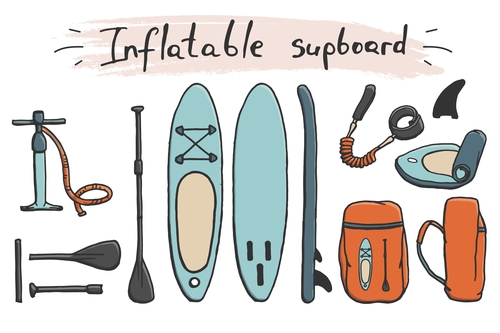 Inflatable supboard